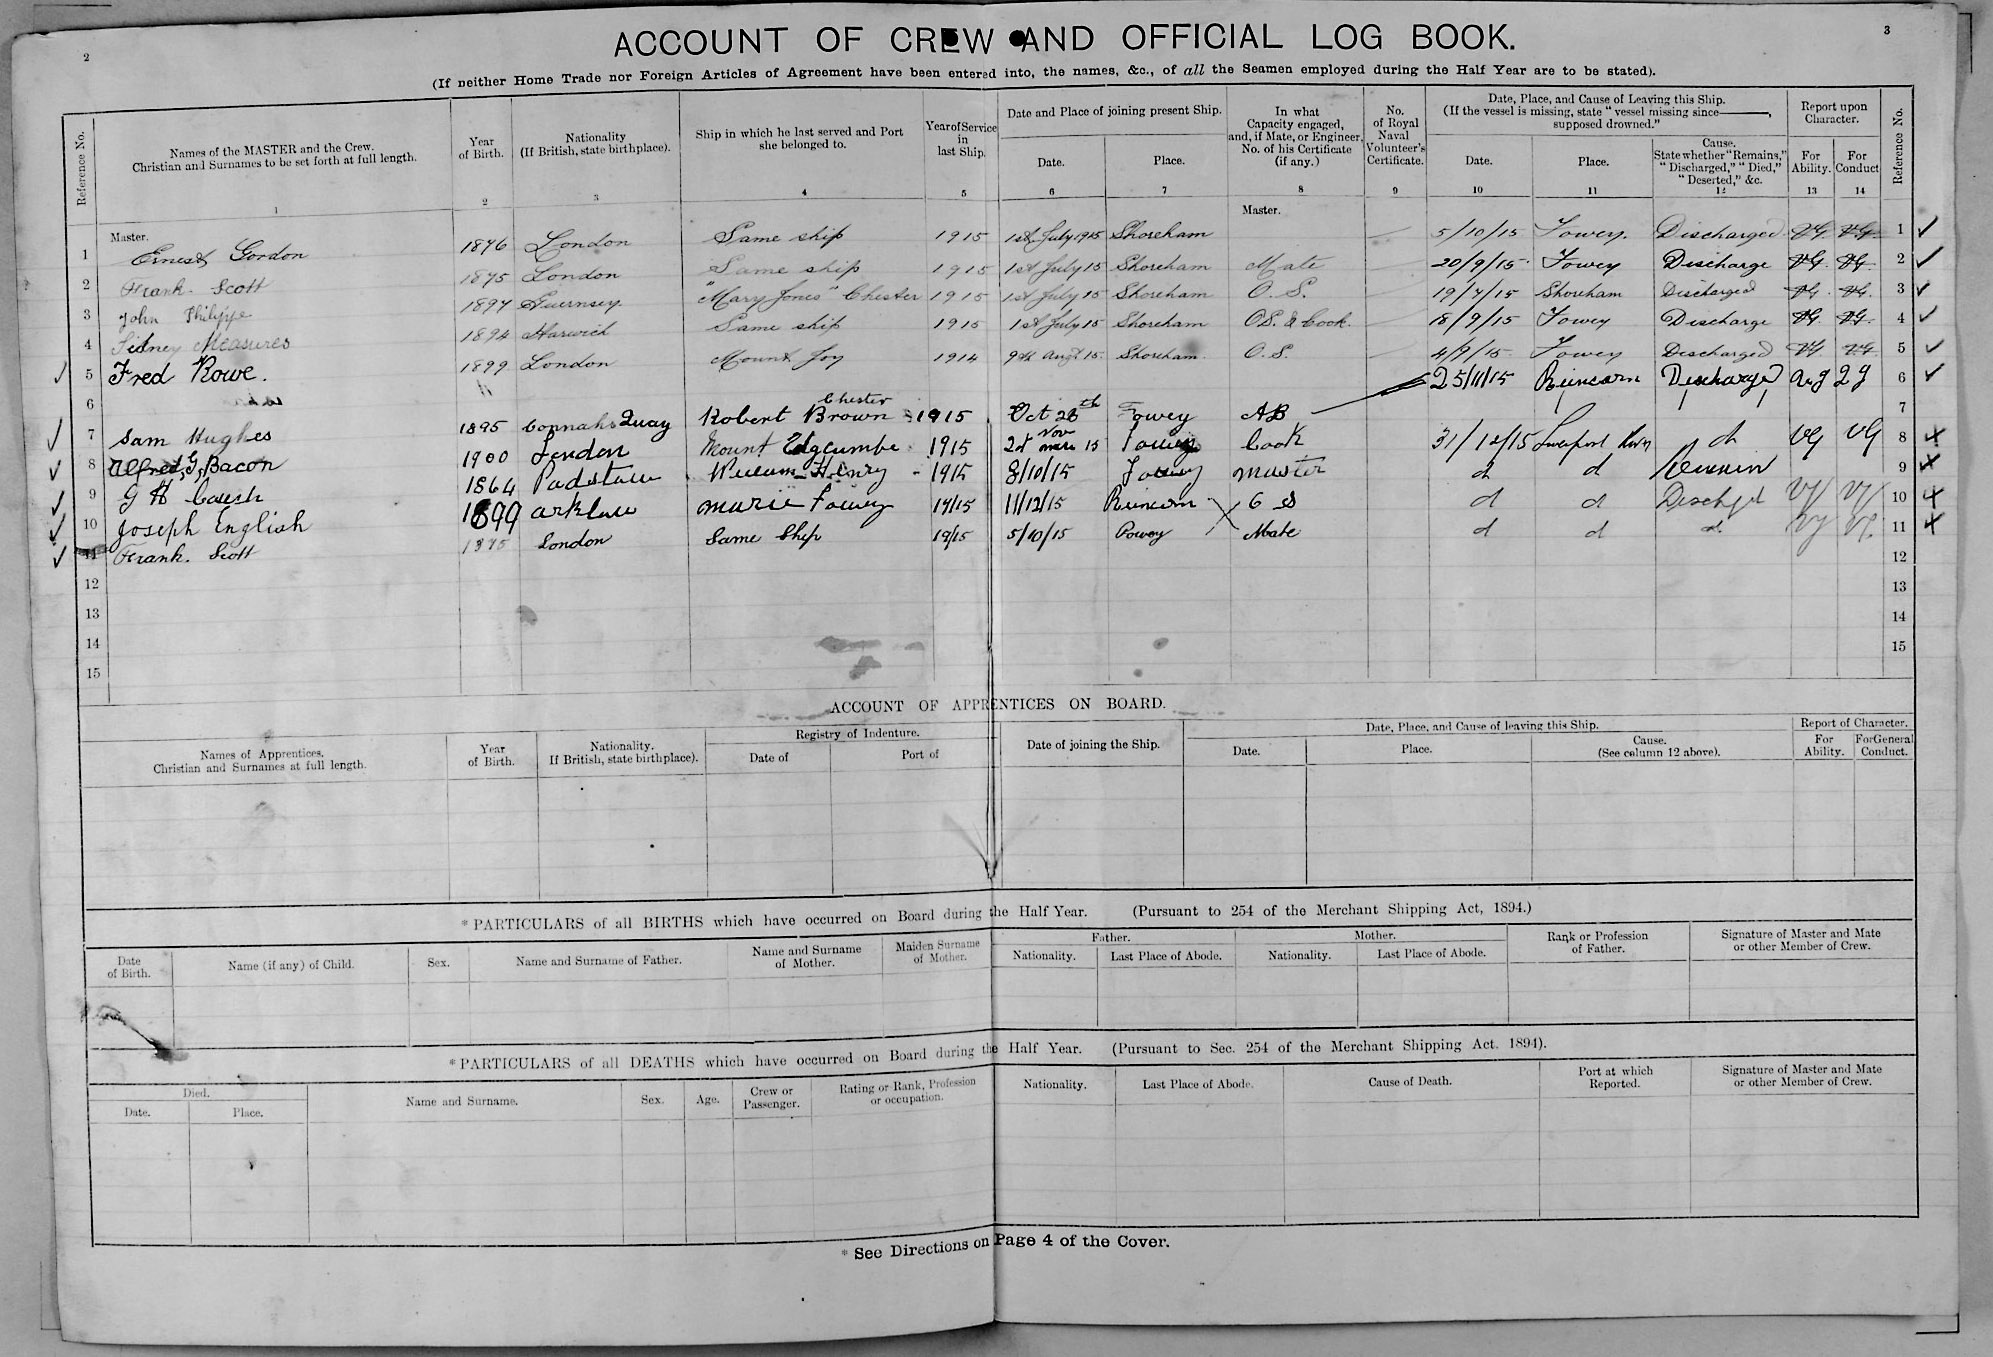 2
3
ACCOUNT OF CREW AND OFFICIAL LOG BOOK.
(If neither Home Trade nor Foreign Articles of Agreement have been entered into, the names, &c., of all the Seamen employed during the Half Year are to be stated).
Reference No.
Names of the MASTER and the Crew. Christian and Surnames to be set forth at full length.
Year of Birth.
Nationality (If British, state birthplace).
Ship in which he last served and Port she belonged to.
Year of Service in last Ship.
Date and Place of joining present Ship.
Date.
Place.
In what Capacity engaged, and, if Mate, or Engineer, No. of his Certificate (if any.)
No. of Royal Naval Volunteer's Certificate.
Date, Place, and Cause of Leaving this Ship.
(If the vessel is missing, state "vessel missing since———, supposed drowned.")
Date.
Place.
Cause. State whether "Remains," "Discharged," "Died," "Deserted," &c.
Report upon Character.
For Ability.
For Conduct
Reference No.
1 2 3 4 5 6 7 8 9 10 11 12 13 14
Master.
Master.
1 Ernest Gordon 1876 London Same ship 1915 1st July 1915 Shoreham 5/10/15 Fowey. Discharged VG VG 1
2 Frank Scott 1875 London Same ship 1915 1st July 15 Shoreham Mate 20/9/15 Fowey Discharge VG VG 2
3 John Philippe 1897 Guernsey "Mary Jones" Chester 1915 1st July 15 Shoreham O.S. 19/7/15 Shoreham Discharged VG VG 3
4 Sidney Measures 1894 Harwich Same ship 1915 1st July 15 Shoreham OS & Cook. 18/9/15 Fowey Discharge VG VG 4
5 Fred Rowe. 1899 London Mount Joy 1914 9th Augt 15 Shoreham O.S. 4/9/15 Fowey Discharged VG VG 5
6 25/11/15 Runcorn Discharged 6
7 Sam Hughes 1895 Connahs Quay Robert Brown Chester 1915 Oct 26th Fowey AB 7
8 Alfred G. Bacon 1900 London Mount Edgcumbe 1915 Nov 15 Fowey Cook 31/12/15 d VG VG 8
9 G H 1864 Padstow William Henry 1915 8/10/15 Fowey Master d d Remain 9
10 Joseph English 1899 Arklow Marie Fowey 19/15 11/12/15 Runcorn O S d d VG VG 10
11 Frank. Scott 1875 London Same Ship 19/15 5/10/15 Fowey Mate d d d. VG VG. 11
12 12
13 13
14 14
15 15
ACCOUNT OF APPRENTICES ON BOARD.
Names of Apprentices, Christian and Surnames at full length.
Year of Birth.
Nationality. If British, state birthplace).
Registry of Indenture.
Date of
Port of
Date of joining the Ship.
Date, Place, and Cause of leaving this Ship.
Date.
Place.
Cause. (See column 12 above).
Report of Character.
For Ability.
For General Conduct.
* PARTICULARS of all BIRTHS which have occurred on Board during the Half Year. (Pursuant to 254 of the Merchant Shipping Act, 1894.)
Date of Birth.
Name (if any) of Child.
Sex.
Name and Surname of Father.
Name and Surname of Mother.
Maiden Surname of Mother.
Father.
Nationality.
Last Place of Abode.
Mother.
Nationality.
Last Place of Abode.
Rank or Profession of Father.
Signature of Master and Mate or other Member of Crew.
* PARTICULARS of all DEATHS which have occurred on Board during the Half Year. (Pursuant to Sec. 254 of the Merchant Shipping Act. 1894).
Died.
Date.
Place.
Name and Surname.
Sex.
Age.
Crew or Passenger.
Rating or Rank, Profession or occupation.
Nationality.
Last Place of Abode.
Cause of Death.
Port at which Reported.
Signature of Master and Mate or other Member of Crew.
* See Directions on Page 4 of the Cover.